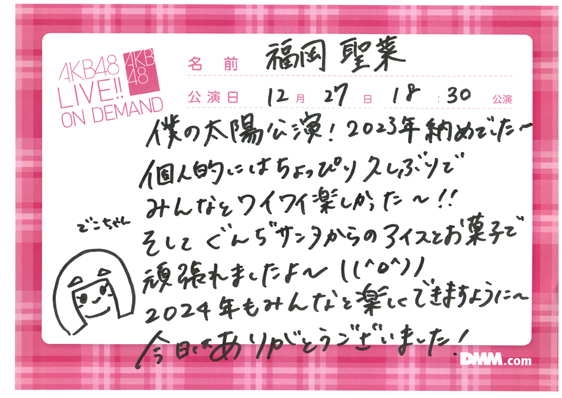 AKB48
LIVE!!
ON DEMAND
AKB
48
名前 福岡 聖菜
公演日 12月 27日 18:30 公演
僕の太陽公演！2023年納めでした〜
個人的にはちょっぴり久しぶりで
みんなとワイワイ楽しかった〜!!
そしてぐんぢサンタからのアイスとお菓子で
頑張れましたよ〜((^o^))
2024年もみんなと楽しくできますように〜
今日はありがとうございました！
でこちゃん
DMM.com